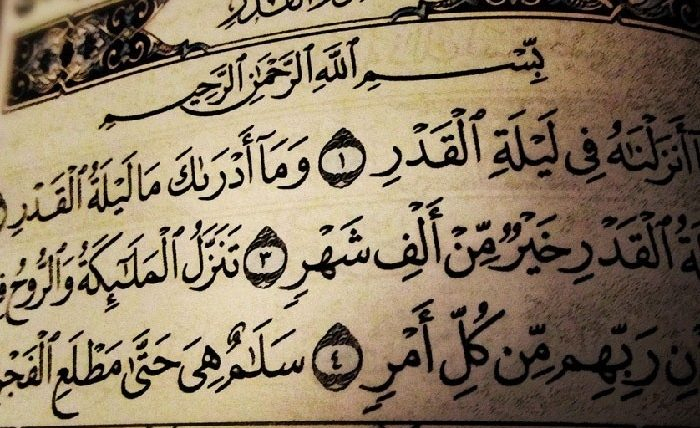 القدر
بِسْمِ ٱللَّهِ ٱلرَّحْمَٰنِ ٱلرَّحِيمِ
أَنزَلْنَٰهُ فِى لَيْلَةِ ٱلْقَدْرِ ١ وَمَآ أَدْرَىٰكَ مَا لَيْلَةُ ٱلْقَدْرِ
ٱلْقَدْرِ خَيْرٌ مِّنْ أَلْفِ شَهْرٍ ٣ تَنَزَّلُ ٱلْمَلَٰٓئِكَةُ وَٱلرُّوحُ
رَبِّهِم مِّن كُلِّ أَمْرٍ ٤ سَلَٰمٌ هِىَ حَتَّىٰ مَطْلَعِ ٱلْفَجْرِ